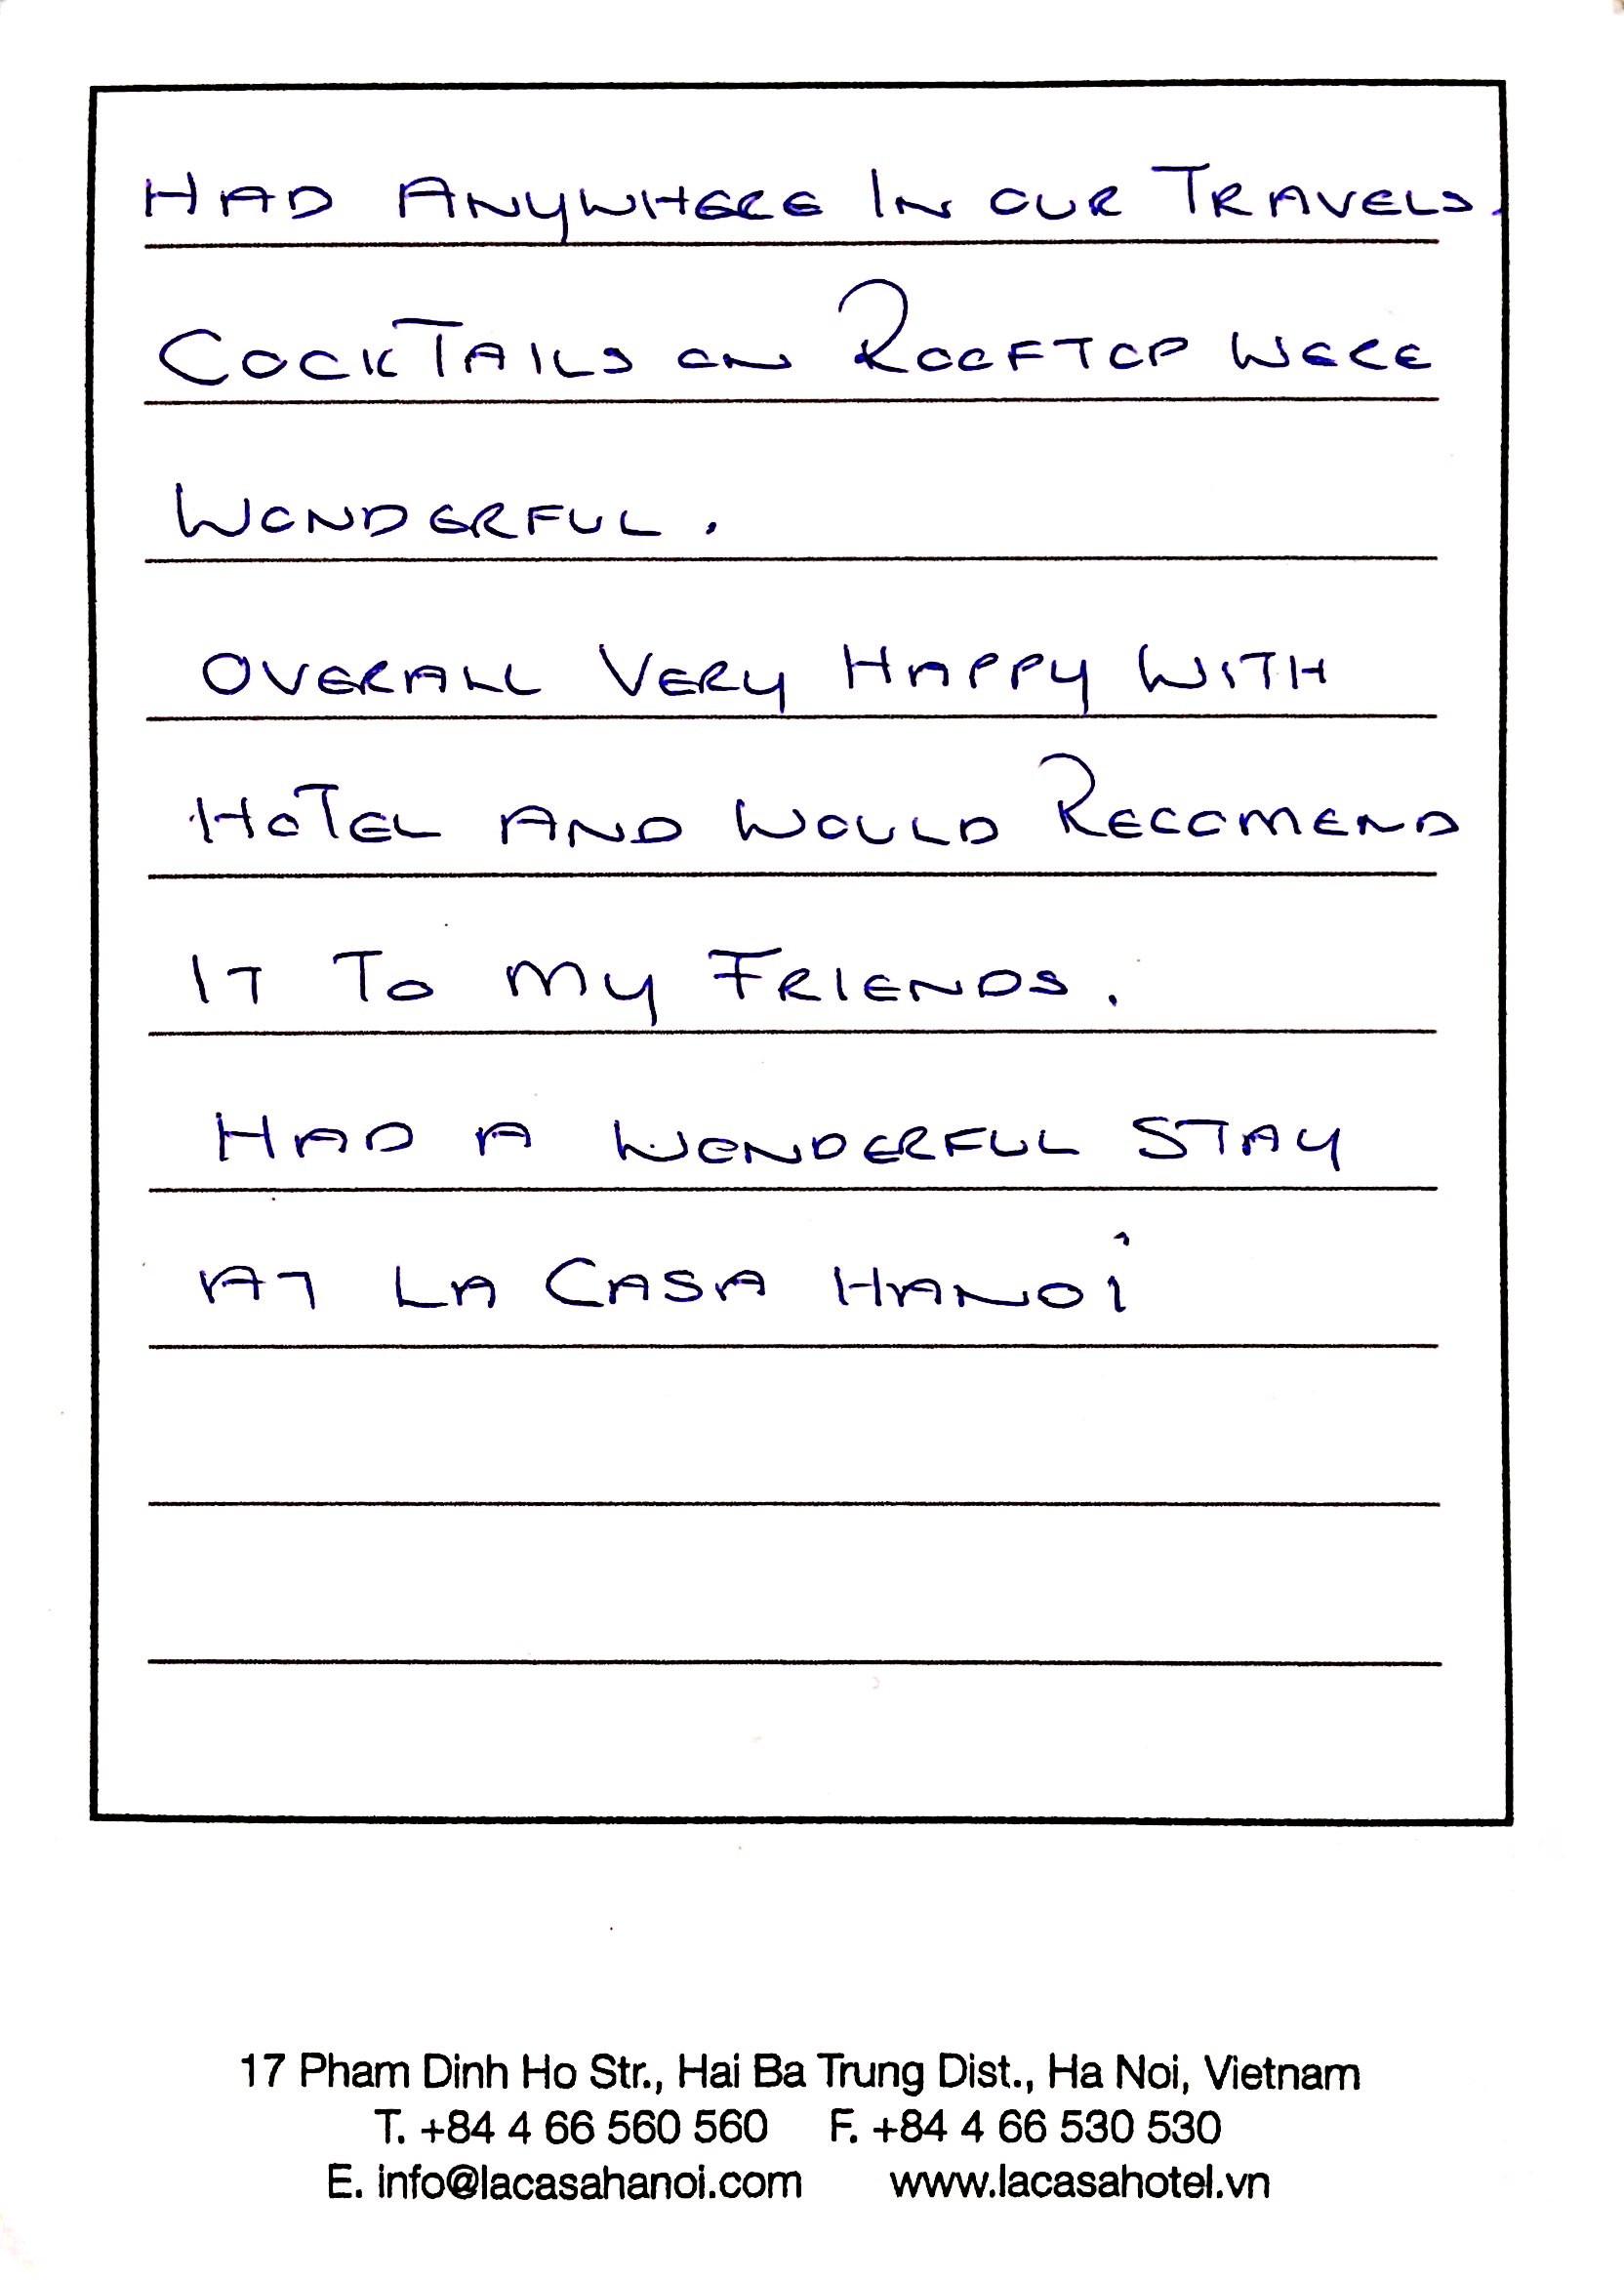 HAD ANYWHERE IN OUR TRAVELS.
COCKTAILS ON ROOFTOP WERE
WONDERFUL.
OVERALL VERY HAPPY WITH
HOTEL AND WOULD RECOMEND
IT TO MY FRIENDS.
HAD A WONDERFUL STAY
AT LA CASA HANOI
17 Pham Dinh Ho Str., Hai Ba Trung Dist., Ha Noi, Vietnam
T. +84 4 66 560 560 F. +84 4 66 530 530
E. info@lacasahanoi.com www.lacasahotel.vn